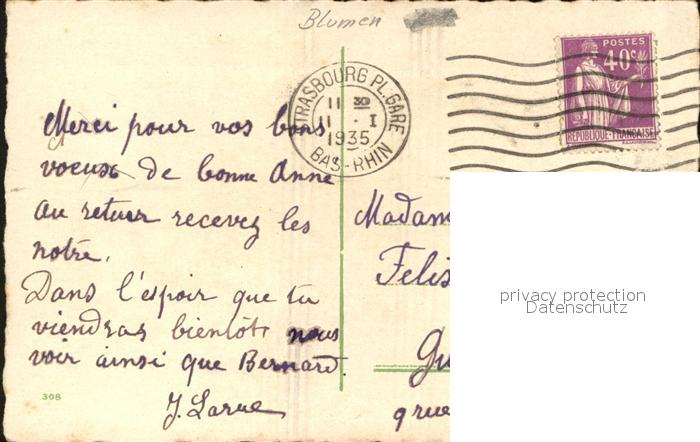 Blumen
STRASBOURG PL. GARE
11 30
11 - I
1935
BAS-RHIN
POSTES
40c
REPUBLIQUE-FRANÇAISE
Merci pour vos bons
voeux de bonne Anne
au retour recevez les
notre.
Dans l'espoir que tu
viendras bientôt nous
voir ainsi que Bernard.
J. Larue
308
Madam
Felis
Gu
9 rue
privacy protection
Datenschutz